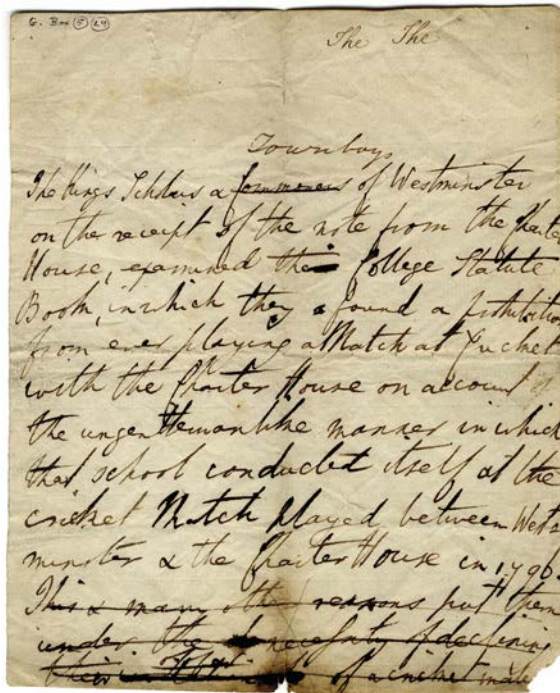 G. Box 5 29
The The
Townboys
The Kings Scholars & Commoners of Westminster
on the receipt of the note from the Charter
House, examined their College Statute
Book, in which they found a prohibition
from ever playing a Match at Cricket
with the Charter House on account of
the ungentlemanlike manner in which
that school conducted itself at the
cricket Match played between West-
minster & the Charter House in 1796
This & many other reasons put them
under the necessity of declining
their of a cricket match